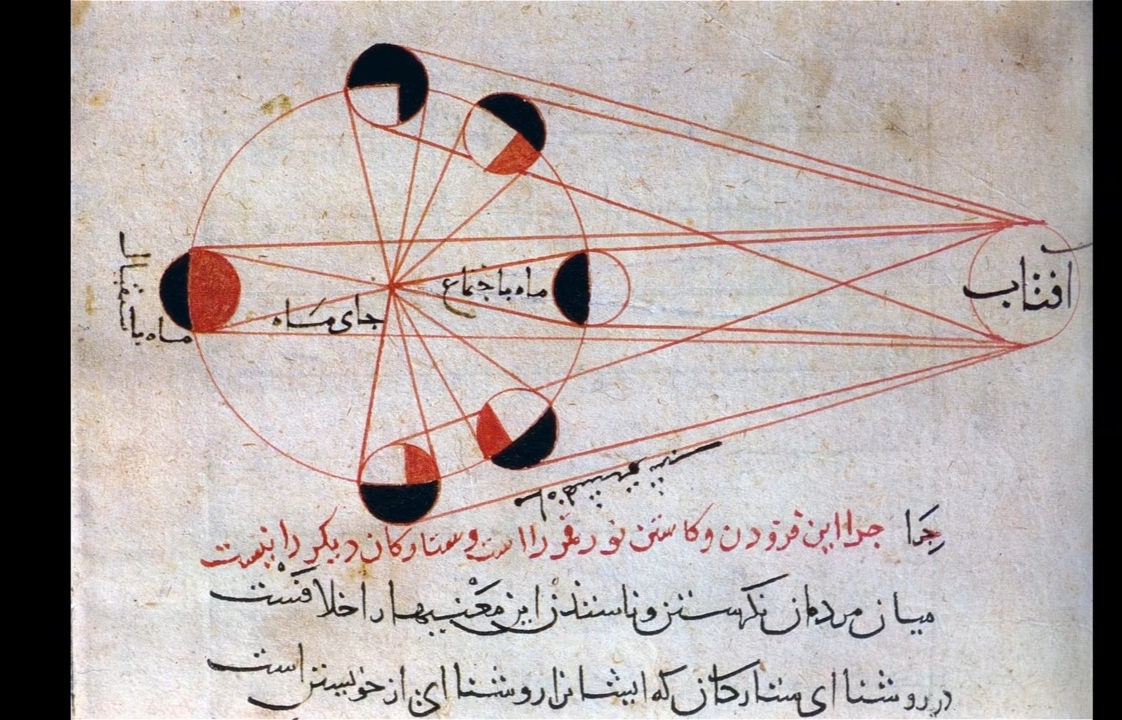 آفتاب
ماه باجتماع
جای ماه
ماه باستقبال
چرا این فزودن و کاستن نور قمر را است و ستارکان دیکر را نیست
میان مردمان نکرستن و ناسندن این معنیها را خلافست
در روشنا ای ستارکان که ایشانرا روشنا ای از خویشتن است